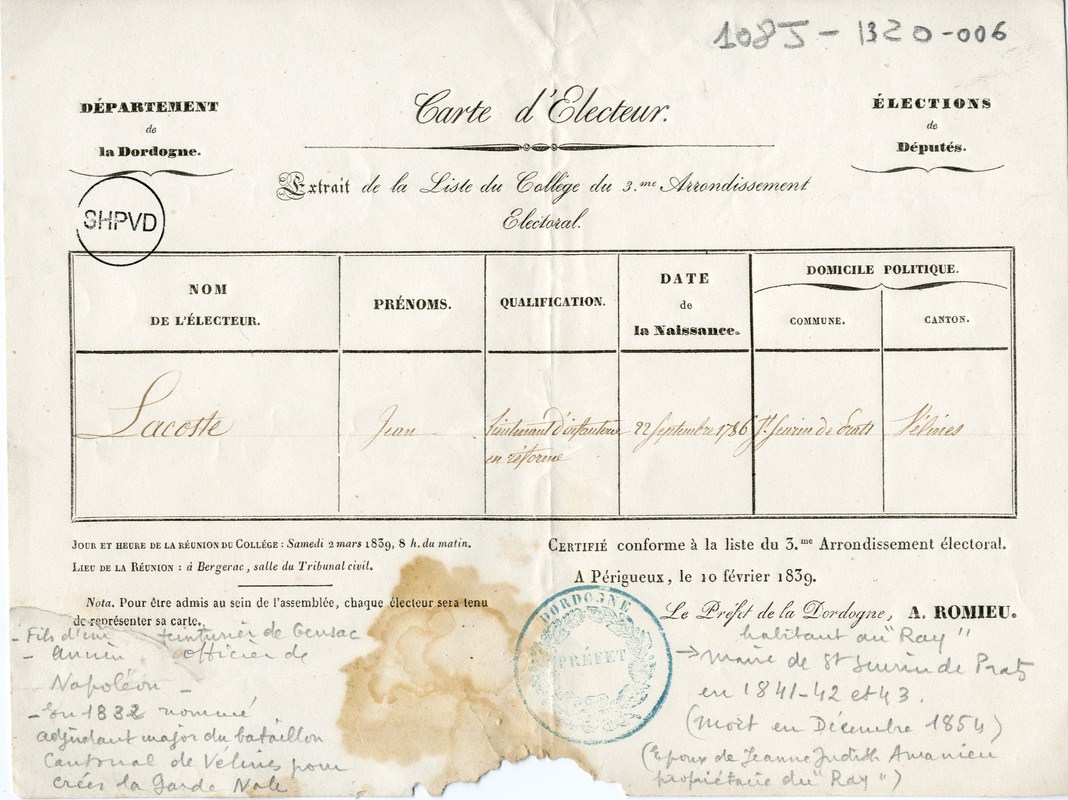 1085 - 1320-006
DÉPARTEMENT
de
la Dordogne.
Carte d'Electeur.
ÉLECTIONS
de
Députés.
SHPVD
Extrait de la Liste du Collège du 3.me Arrondissement
Electoral.
NOM
DE L'ÉLECTEUR.
PRÉNOMS.
QUALIFICATION.
DATE
de
la Naissance.
DOMICILE POLITIQUE.
COMMUNE.
CANTON.
Lacoste
Jean
lieutenant d'infanterie
en réforme
22 Septembre 1786
St Seurin de Prats
Vélines
JOUR ET HEURE DE LA RÉUNION DU COLLÉGE : Samedi 2 mars 1839, 8 h. du matin.
LIEU DE LA RÉUNION : à Bergerac, salle du Tribunal civil.
Nota. Pour être admis au sein de l'assemblée, chaque électeur sera tenu
de représenter sa carte.
CERTIFIÉ conforme à la liste du 3.me Arrondissement électoral.
A Périgueux, le 10 février 1839.
Le Préfet de la Dordogne, A. ROMIEU.
DORDOGNE
PRÉFET
- Fils d'un teinturier de Gensac
- Ancien officier de
Napoléon -
- En 1832 nommé
adjudant major du bataillon
Cantonal de Vélines pour
créer la Garde Nale
habitant au "Ray"
→ Maire de St Seurin de Prats
en 1841-42 et 43.
(Mort en Décembre 1854)
(Epoux de Jeanne Judith Amanieu
propriétaire du "Ray")